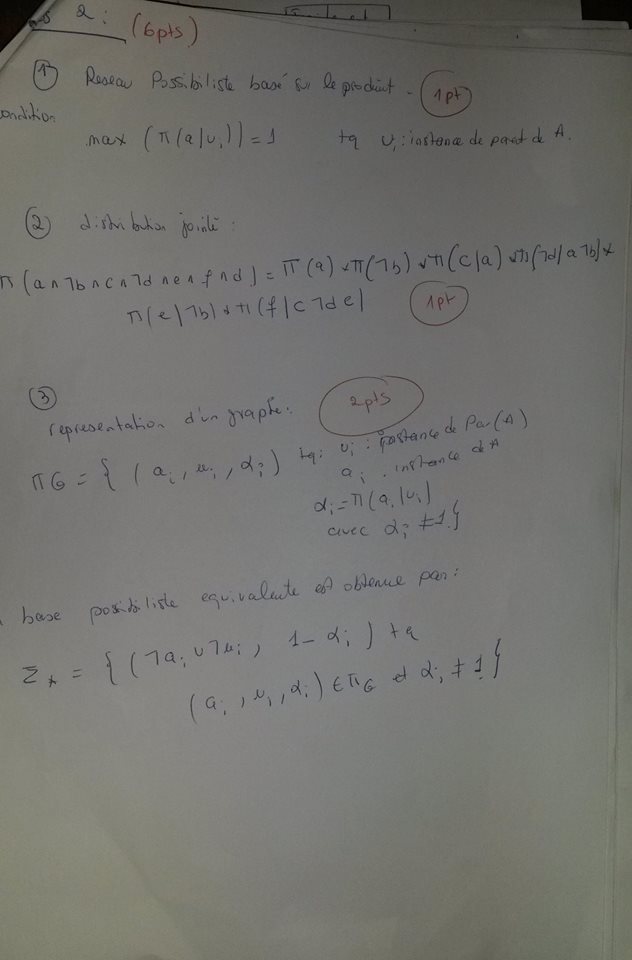 2 : (6pts)
① Reseau Possibiliste basé sur le produit - 1pt
condition
max (π(a|uᵢ)) = 1 tq uᵢ : instance de parent de A.
② distribution jointe :
π(a ∧ ¬b ∧ c ∧ ¬d ∧ e ∧ f ∧ d) = π(a) * π(¬b) * π(c|a) * π(¬d|a¬b) *
π(e|¬b) * π(f|c¬de) 1pt
③
representation d'un graphe : 2pts
πG = { (aᵢ, uᵢ, αᵢ) tq : uᵢ : instance de Par(A)
aᵢ : instance de A
αᵢ = π(aᵢ|uᵢ)
avec αᵢ ≠ 1 }
base possibiliste equivalente est obtenue par :
Σ* = { (¬aᵢ ∪ ¬uᵢ, 1 - αᵢ) tq
(aᵢ, uᵢ, αᵢ) ∈ πG et αᵢ ≠ 1 }